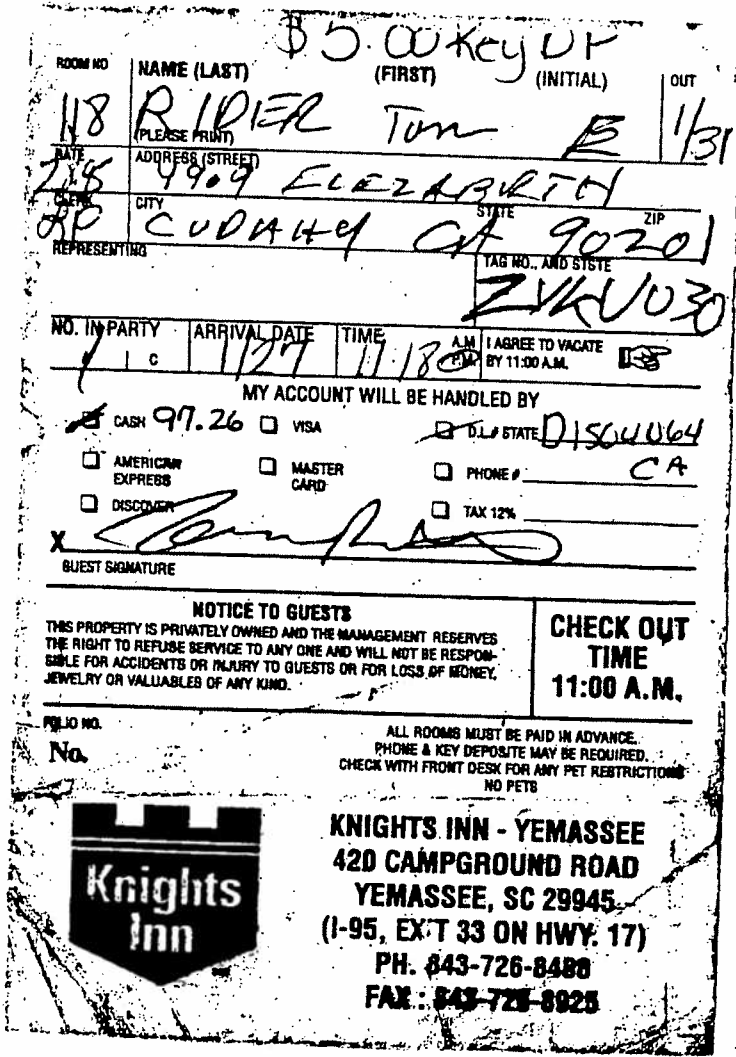 $5.00 Key DP
ROOM NO NAME (LAST) (FIRST) (INITIAL) OUT
118 RIDER Tom E 1/31
(PLEASE PRINT)
RATE ADDRESS (STREET)
ELEZABIRTH
CLERK CITY STATE ZIP
CUDAHY CA 90201
REPRESENTING TAG NO., AND STSTE
ZVKU030
NO. IN PARTY ARRIVAL DATE TIME A.M. P.M. I AGREE TO VACATE
BY 11:00 A.M.
1 C 1/27 11:18
MY ACCOUNT WILL BE HANDLED BY
CASH 97.26 VISA D.L.# STATE D1504064
CA
AMERICAN EXPRESS MASTER CARD PHONE #
DISCOVER TAX 12%
X
GUEST SIGNATURE
NOTICE TO GUESTS
THIS PROPERTY IS PRIVATELY OWNED AND THE MANAGEMENT RESERVES
THE RIGHT TO REFUSE SERVICE TO ANY ONE AND WILL NOT BE RESPON-
SIBLE FOR ACCIDENTS OR INJURY TO GUESTS OR FOR LOSS OF MONEY,
JEWELRY OR VALUABLES OF ANY KIND.
CHECK OUT
TIME
11:00 A.M.
FOLIO NO.
No.
ALL ROOMS MUST BE PAID IN ADVANCE.
PHONE & KEY DEPOSITE MAY BE REQUIRED.
CHECK WITH FRONT DESK FOR ANY PET RESTRICTIONS
NO PETS
Knights
Inn
KNIGHTS INN - YEMASSEE
420 CAMPGROUND ROAD
YEMASSEE, SC 29945
(I-95, EXIT 33 ON HWY. 17)
PH. 843-726-8488
FAX : 843-726-8925